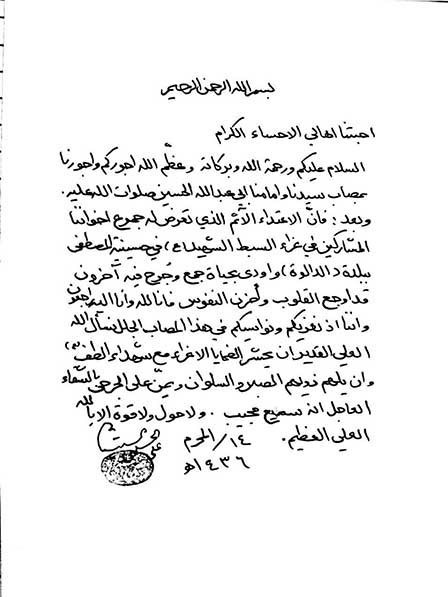 بسم الله الرحمن الرحيم
احبتنا اهالي الاحساء الكرام
السلام عليكم ورحمة الله وبركاته وعظّم الله اجوركم واجورنا
بمصاب سيدنا وامامنا ابي عبدالله الحسين صلوات الله عليه .
وبعد : فانّ الاعتداء الآثم الذي تعرض له جموع اخواننا
المشاركين في عزاء السبط الشهيد (ع) في حسينية المصطفى
ببلدة (الدالوة) واودى بحياة جمع وجُرح فيه آخرون
قد اوجع القلوب وأحزن النفوس فانا لله وانا اليه راجعون
واننا اذ نعزيكم ونواسيكم في هذا المصاب الجلل نسأل الله
العلي القدير ان يحشر الضحايا الاعزاء مع شهداء الطف (ع)
وان يلهم ذويهم الصبر والسلوان ويمنّ على الجرحى بالشفاء
العاجل انه سميع مجيب . ولا حول ولا قوة الا بالله
العلي العظيم . ١٤/ المحرم
١٤٣٦ هـ